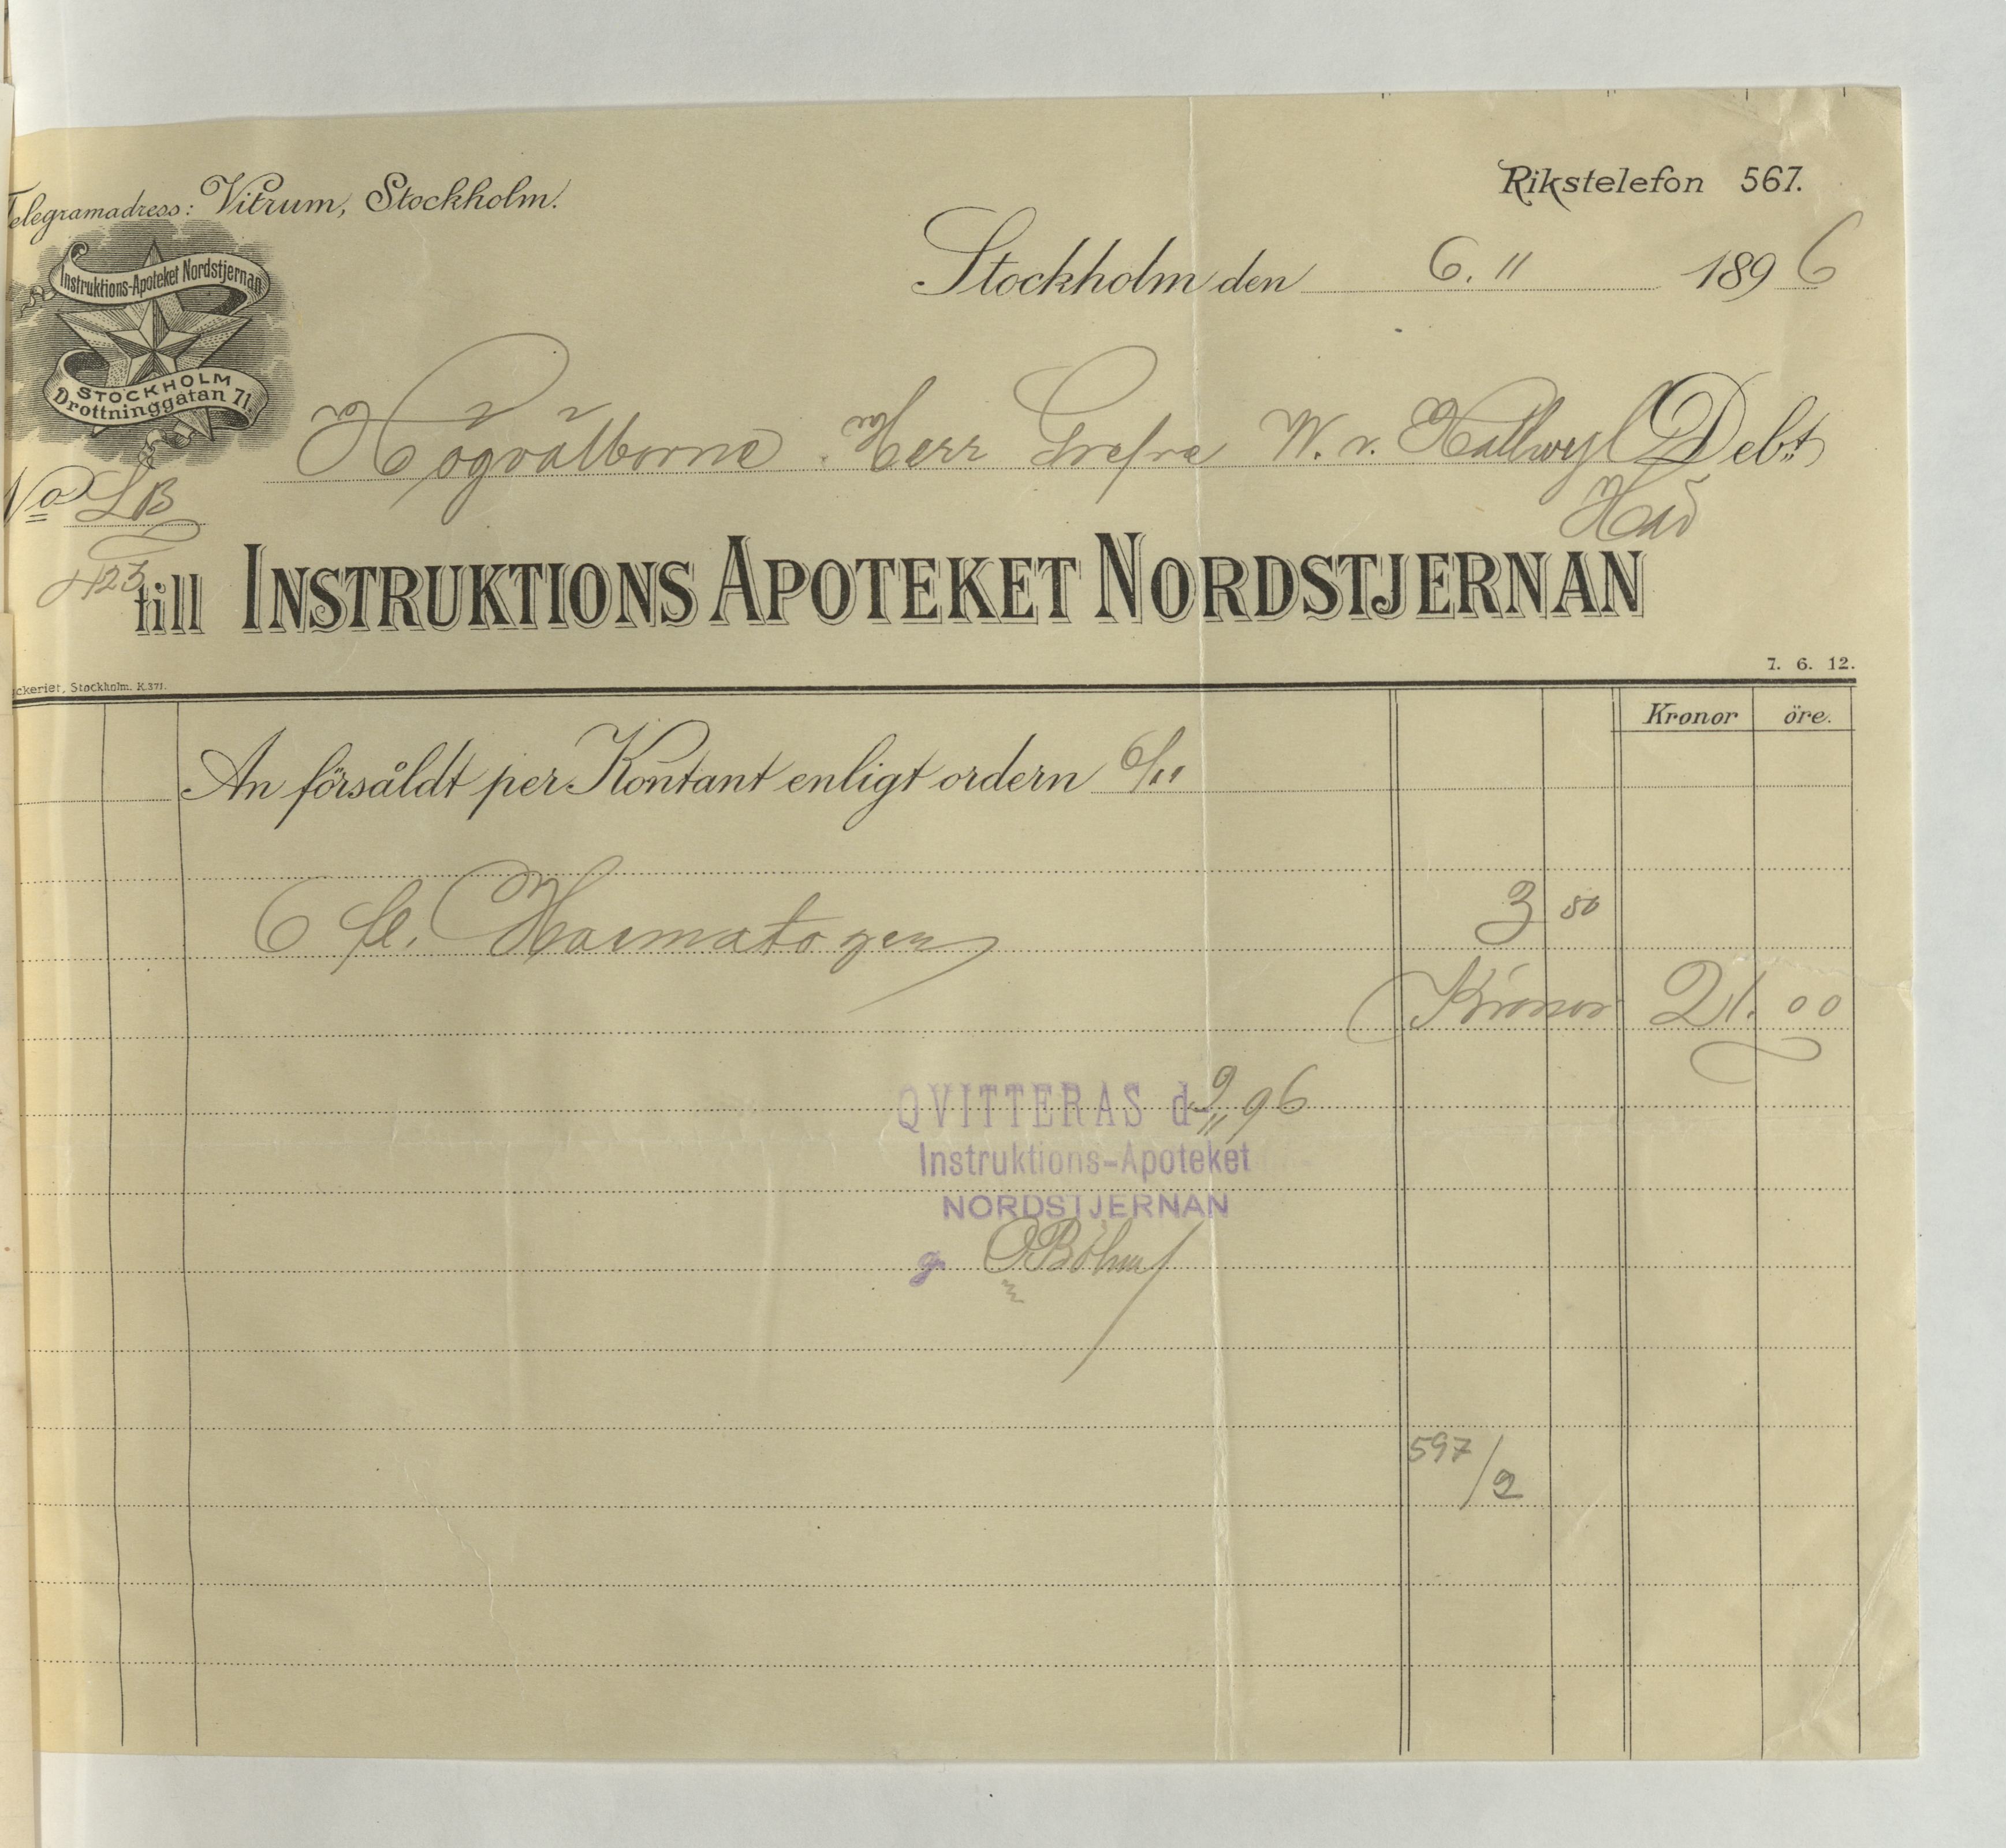 Telegramadress: Vitrum, Stockholm.
Rikstelefon 567.
Instruktions-Apoteket Nordstjernan
STOCKHOLM
Drottninggatan 71.
Stockholm den 6. 11 1896
Högvälborne Herr Grefve W. v. Hallwyl Debt
Här
No LB
423
till INSTRUKTIONS APOTEKET NORDSTJERNAN
7. 6. 12.
ckeriet, Stockholm. K.371.
Kronor öre.
An försåldt per Kontant enligt ordern 6/11
6 fl. Haematogen 3 50
Kronor 21. 00
QVITTERAS d 9/11 96
Instruktions-Apoteket
NORDSTJERNAN
g. O Böhm
597/2